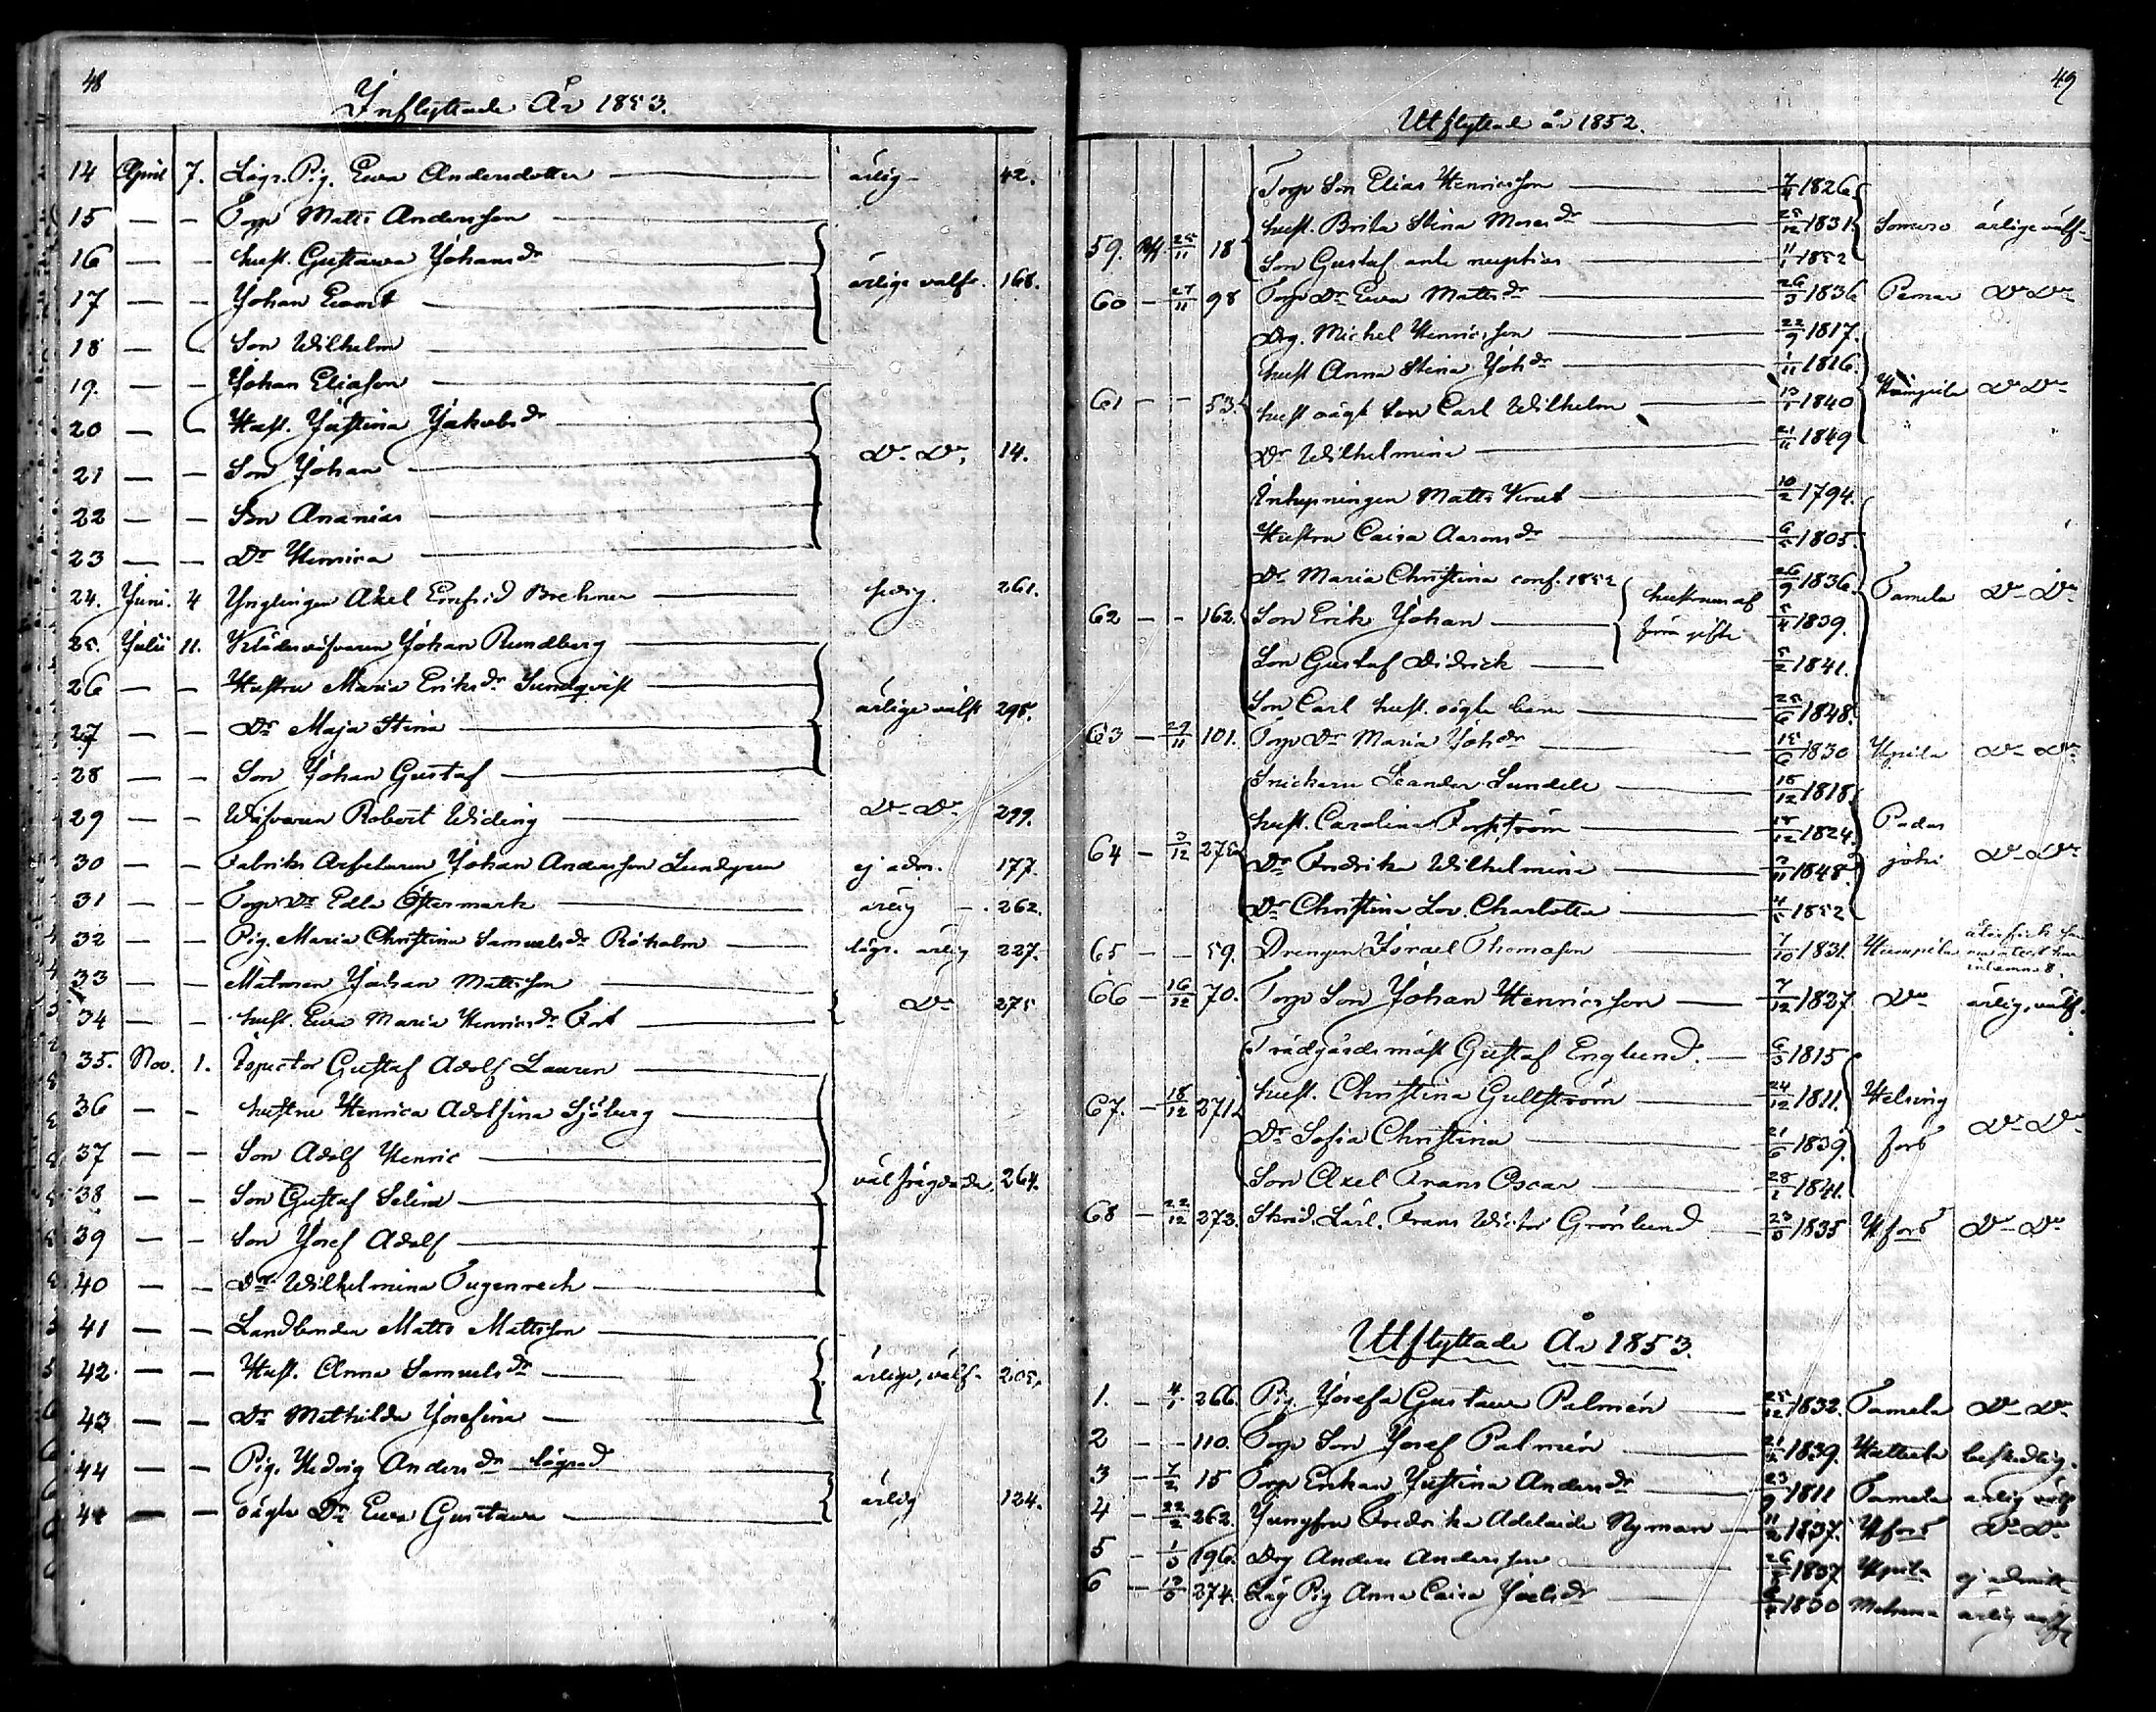 48
Inflyttade År 1853.
14 April 7. Lägr. Pig. Ewa Andersdotter — ärlig — 42.
15 — — Torp Matts Andersson —
16 — — hust. Gustawa Johansdr —
17 — — Johan Ewert — ärlige välfr. 168.
18 — Son Wilhelm
19. — — Johan Eliasson —
20 — Hust. Justina Jakobsdr —
21 — — Son Johan — Do Do, 14.
22 — — Son Ananias —
23 — — Dr Henrica —
24. Juni. 4 Ynglingen Axel Enfrid Brehmer — 261.
25. Julii 11. Klädesväfvaren Johan Rundberg —
26 — — Hustru Maria Eriksdr Sundqvist —
27 — — Dr Maja Stina — ärlige välfr 295.
28 — — Son Johan Gustaf —
29 — — Wäfvaren Robert Widing — Do Do 299.
30 — — Fabriks Arbetaren Johan Andersson Lundgren ej adm. 177.
31 — — Torp Dr Edla Östermark — ärlig — 262.
32 — — Pig. Maria Christina Samuelsdr Röholm — lägr. ärlig 227.
33 — — Johan Mattsson —
34 — — hust. Ewa Maria Henricsdr Fort — Do 275
35. Nov. 1. Inspector Gustaf Adolf Lauren —
36 — — hustru Henrica Adolfina Sjöberg —
37 — — Son Adolf Henric —
38 — — Son Gustaf Selim — väl frägdade. 264.
39 — — Son Josef Adolf —
40 — — Dr Wilhelmina Tugenrech —
41 — — Landbonden Matts Mattsson —
42 — — Hust. Anna Samuelsdr — ärlige, välf. 205.
43 — — Dr Mathilda Josefina —
44 — — Pig. Hedvig Andersdr lägrad
44 — — oägta Dr Ewa Gustawa — ärlig 124.
49
Utflyttade år 1852.
Torp Son Elias Henricsson — 7/4 1826
hust. Brita Stina Mosesdr — 25/12 1831. Somero ärlige välf.
59. 25/11 18 Son Gustaf ante nuptias — 11/1 1852
60 — 27/11 98 Torp Dr Ewa Mattsdr — 26/3 1836 Pemar Do Do
Drg. Michel Henricsson — 22/9 1817.
hust Anna Stina Johdr — 1/11 1816.
61 — — 53. hust oägt Son Carl Wilhelm — 13/1 1840 Do Do
Dr Wilhelmina — 21/11 1849
Inhysningen Matts Virut — 10/2 1794.
Hustru Caisa Aaronsdr — 6/5 1805.
Dr Maria Christina conf. 1852 hustruns af 26/9 1836. Tamela Do Do
62 — — 162. Son Erik Johan — förra gifte 5/4 1839.
Son Gustaf Didrick — 5/2 1841.
Son Carl hust. oägta barn — 25/6 1848.
63 — 29/11 101. Torp Dr Maria Johdr — 15/6 1830 Do Do
Snickare Leander Sundell — 18/12 1818
hust. Carolina Forsström — 18/12 1824. Padas
64 — 3/12 275 Dr Fredrika Wilhelmina — 3/11 1848. joki Do Do
Dr Christina Lov. Charlotta — 4/5 1852
65 — — 59. Drengen Israel Thomasson — 7/10 1831. Humpila
66 — 16/12 70. Torp Son Johan Henricsson — 7/12 1837. Do ärlig, välf.
Trädgårdsmäst Gustaf Englund. — 6/3 1815
hust. Christina Gullström — 24/12 1811. Helsing
67. — 18/12 271 Dr Sofia Christina — 21/6 1839. fors Do Do
Son Axel Frans Oscar — 28/1 1841.
68 — 22/12 273. Skräd. Lärl. Frans Wictor Grönlund — 23/3 1835 Hfors Do Do
Utflyttade År 1853.
1. — 4/1 266. Pig. Josefa Gustawa Palmén — 25/12 1832. Tamela Do Do
2 — — 110. Torp Son Josef Palmén — 1839. Hattula beskedlig.
3 — 7/2 15 Torp Enkan Justina Andersdr — 23/9 1811 Tamela ärlig välf
4 — 22/2 262. Jungfru Fredrika Adelaide Nyman — 1837. Hfors Do Do
5 — 1/3 196. Drg Anders Andersson — 1837 ej admitt
6 — 13/3 274. Läg Pig Anna Caisa Joelsdr — 1830 ärlig välf